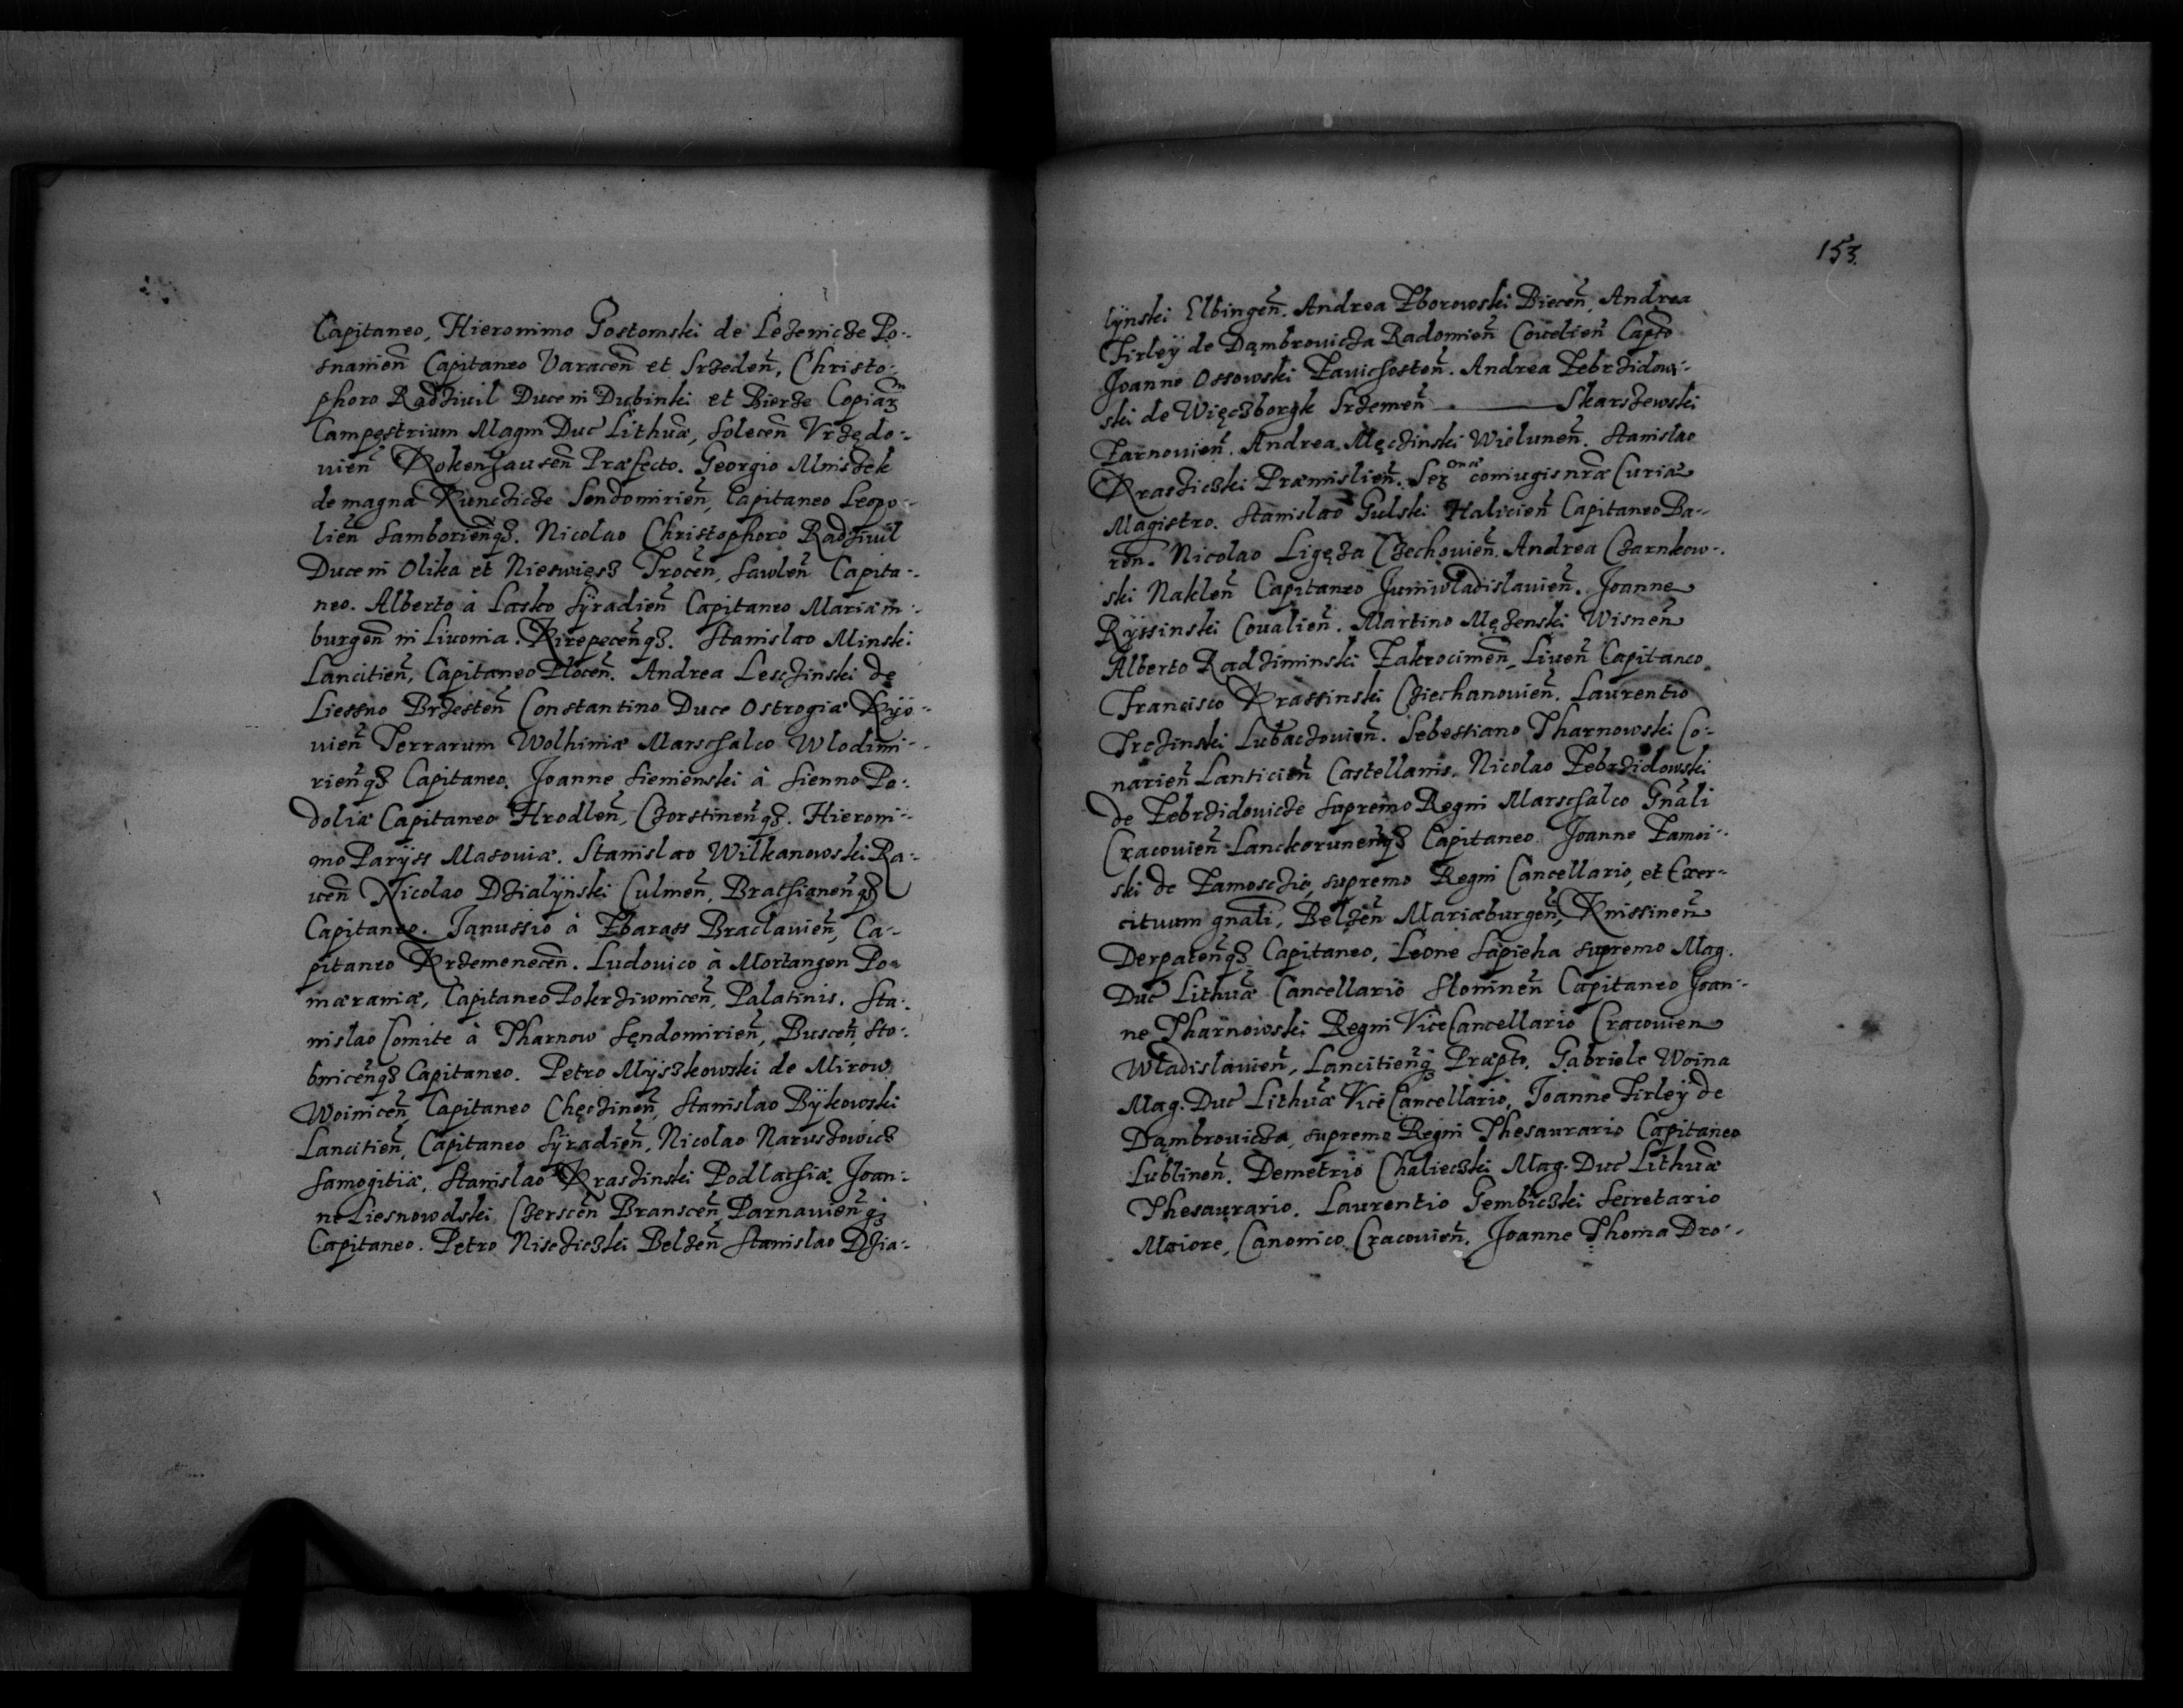 Capitaneo, Hieronimo Gostomski de Leżenicże Po-
snanien̄ Capitaneo Varacen̄ et Srżeden̄, Christo-
phoro Radżiuil Duce in Dubinki et Bierże Copiaꝝ
Campęstrium Magni Duc̄ Lithuā, Solecen̄ Vrżędo-
uien̄ Kokenhausen̄ Præfecto. Georgio Mniszek
de magna Kuncżicże Sendomirien̄, Capitaneo Leopo-
lien̄ Samborien̄qȝ. Nicolao Christophoro Radżiuil
Duce in Olika et Nieswięsz Trocen̄, Sawlen̄ Capita-
neo. Alberto à Lasko Sÿradien̄ Capitaneo Mariæm-
burgen̄ in Liuonia. Kirepecen̄qȝ. Stanislao Minski
Lancitien̄, Capitaneo Plocen̄. Andrea Lescżinski de
Liessno Brżesten̄ Constantino Duce Ostrogiæ Kyo-
uien̄ Terrarum Wolhiniæ Marschalco Wlodimi-
rien̄qȝ Capitaneo. Joanne Sienienski à Sienno Po-
doliæ Capitaneo Hrodlen̄, Cżorstinen̄qȝ. Hieroni-
mo Parÿss Masouiæ. Stanislao Wilkanowski Ra-
uen̄ Nicolao Dżialÿnski Culmen̄, Brathianen̄qȝ
Capitaneo. Janussio à Zbarass Braclauien̄, Ca-
pitaneo Krżemenecen̄. Ludouico à Mortangen Po-
mæraniæ, Capitaneo Pokrżiwnicen̄, Palatinis. Sta-
nislao Comite à Tharnow Sęndomirien̄, Buscen̄ Sto-
bnicen̄qȝ Capitaneo. Petro Mÿszkowski de Mirow
Woinicen̄, Capitaneo Chęcżinen̄, Stanislao Bÿkowski
Lancitien̄, Capitaneo Sÿradien̄, Nicolao Naruszowicz
Samogitiæ, Stanislao Krasżinski Podlachiæ. Joan-
ne Liesnowolski Cżerscen̄ Branscen̄ Parnauien̄qȝ
Capitaneo. Petro Niscżiczki Belżen̄ Stanislao Dżia-
153.
lÿnski Elbingen̄. Andrea Zborowski Biecen̄, Andrea
Firleÿ de Dąmbrouicża Radomien̄ Couelien̄ Capto
Joanne Ossowski Zauichosten̄. Andrea Zebrżidow-
ski de Więczborgk Srżemen̄ ——— Skarszewski
Zarnouien̄. Andrea Męcżinski Wielunen̄. Stanislao
Krasżiczki Præmislien̄. Serᵒⁿᵃᵉ coniugis nr̄æ Curiæ
Magistro. Stanislao Gulski Halicien̄ Capitaneo Ba-
ren̄. Nicolao Ligęża Cżechouien̄. Andrea Cżarnkow-
ski Naklen̄ Capitaneo Juniwladislauien̄. Joanne
Ryssinski Coualien̄. Martino Mężenski Wisnen̄
Alberto Radżiminski Zakrocimen̄, Liuen̄ Capitaneo
Francisco Krassinski Cżiechanouien̄. Laurentio
Trcżinski Lubacżouien̄. Sebestiano Tharnowski Co-
narien̄ Lanticien̄ Castellanis. Nicolao Zebrżidowski
de Zebrżidouicże supremo Regni Marschalco Gn̄ali
Cracouien̄ Lanckorunen̄qȝ Capitaneo. Joanne Zamoi-
ski de Zamoscżie, supremo Regni Cancellario, et Exer-
cituum gn̄ali, Belżen̄ Mariæburgen̄, Knissinen̄
Derpaten̄qȝ Capitaneo, Leone Sapieha supremo Mag.
Duc̄ Lithuā Cancellario Slominen̄ Capitaneo Joan-
ne Tharnowski Regni ViceCancellario Cracouien̄
Wladislauien̄, Lancitien̄qȝ Præpto. Gabriele Woina
Mag. Duc̄ Lithuā Vice Cancellario, Joanne Firleÿ de
Dąmbrouicża, supremo Regni Thesaurario Capitaneo
Lublinen̄. Demetrio Chalieczki Mag. Duc̄ Lithuā
Thesaurario. Laurentio Gembiczki Secretario
Maiore, Canonico Cracouien̄. Joanne Thoma Dro-